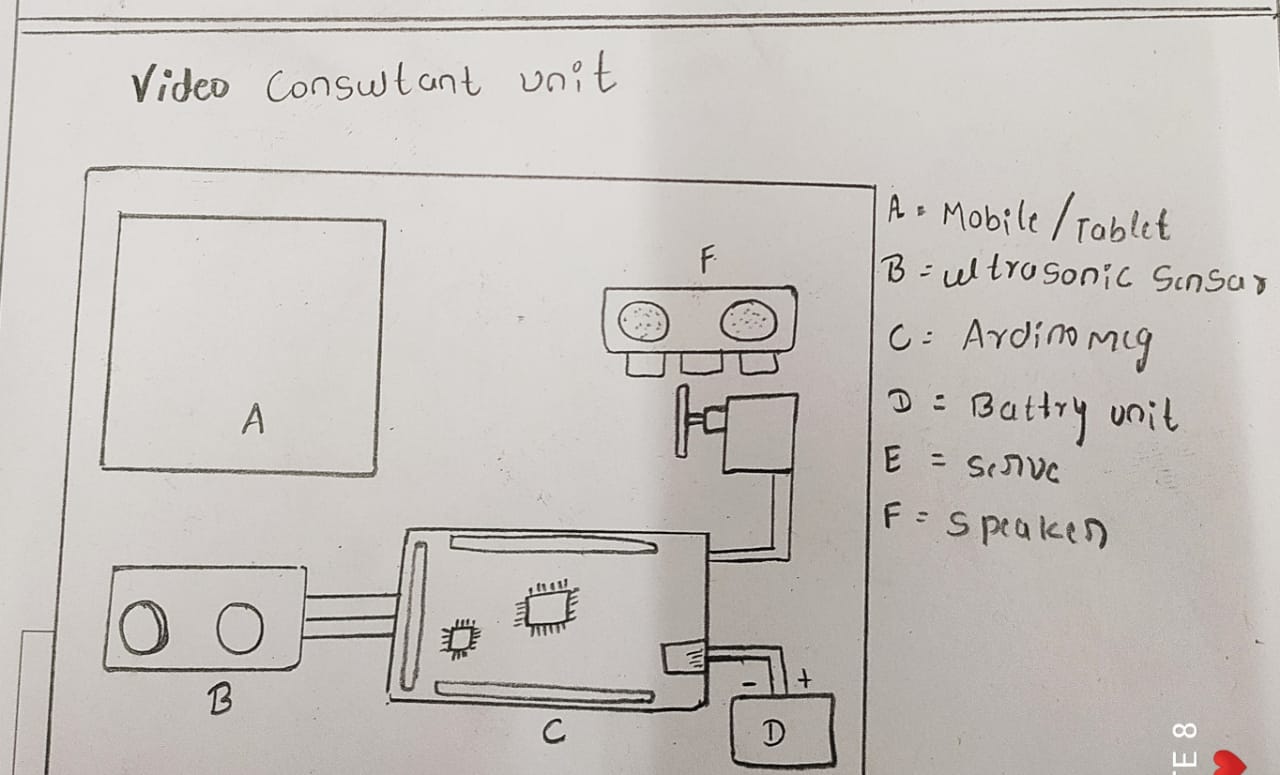 Video Consultant unit
A = Mobile/Tablet
B = ultrasonic Sensar
C = Ardino meg
D = Battry unit
E = servc
F = Speaker
F
A
B
C
- +
D
TE 8